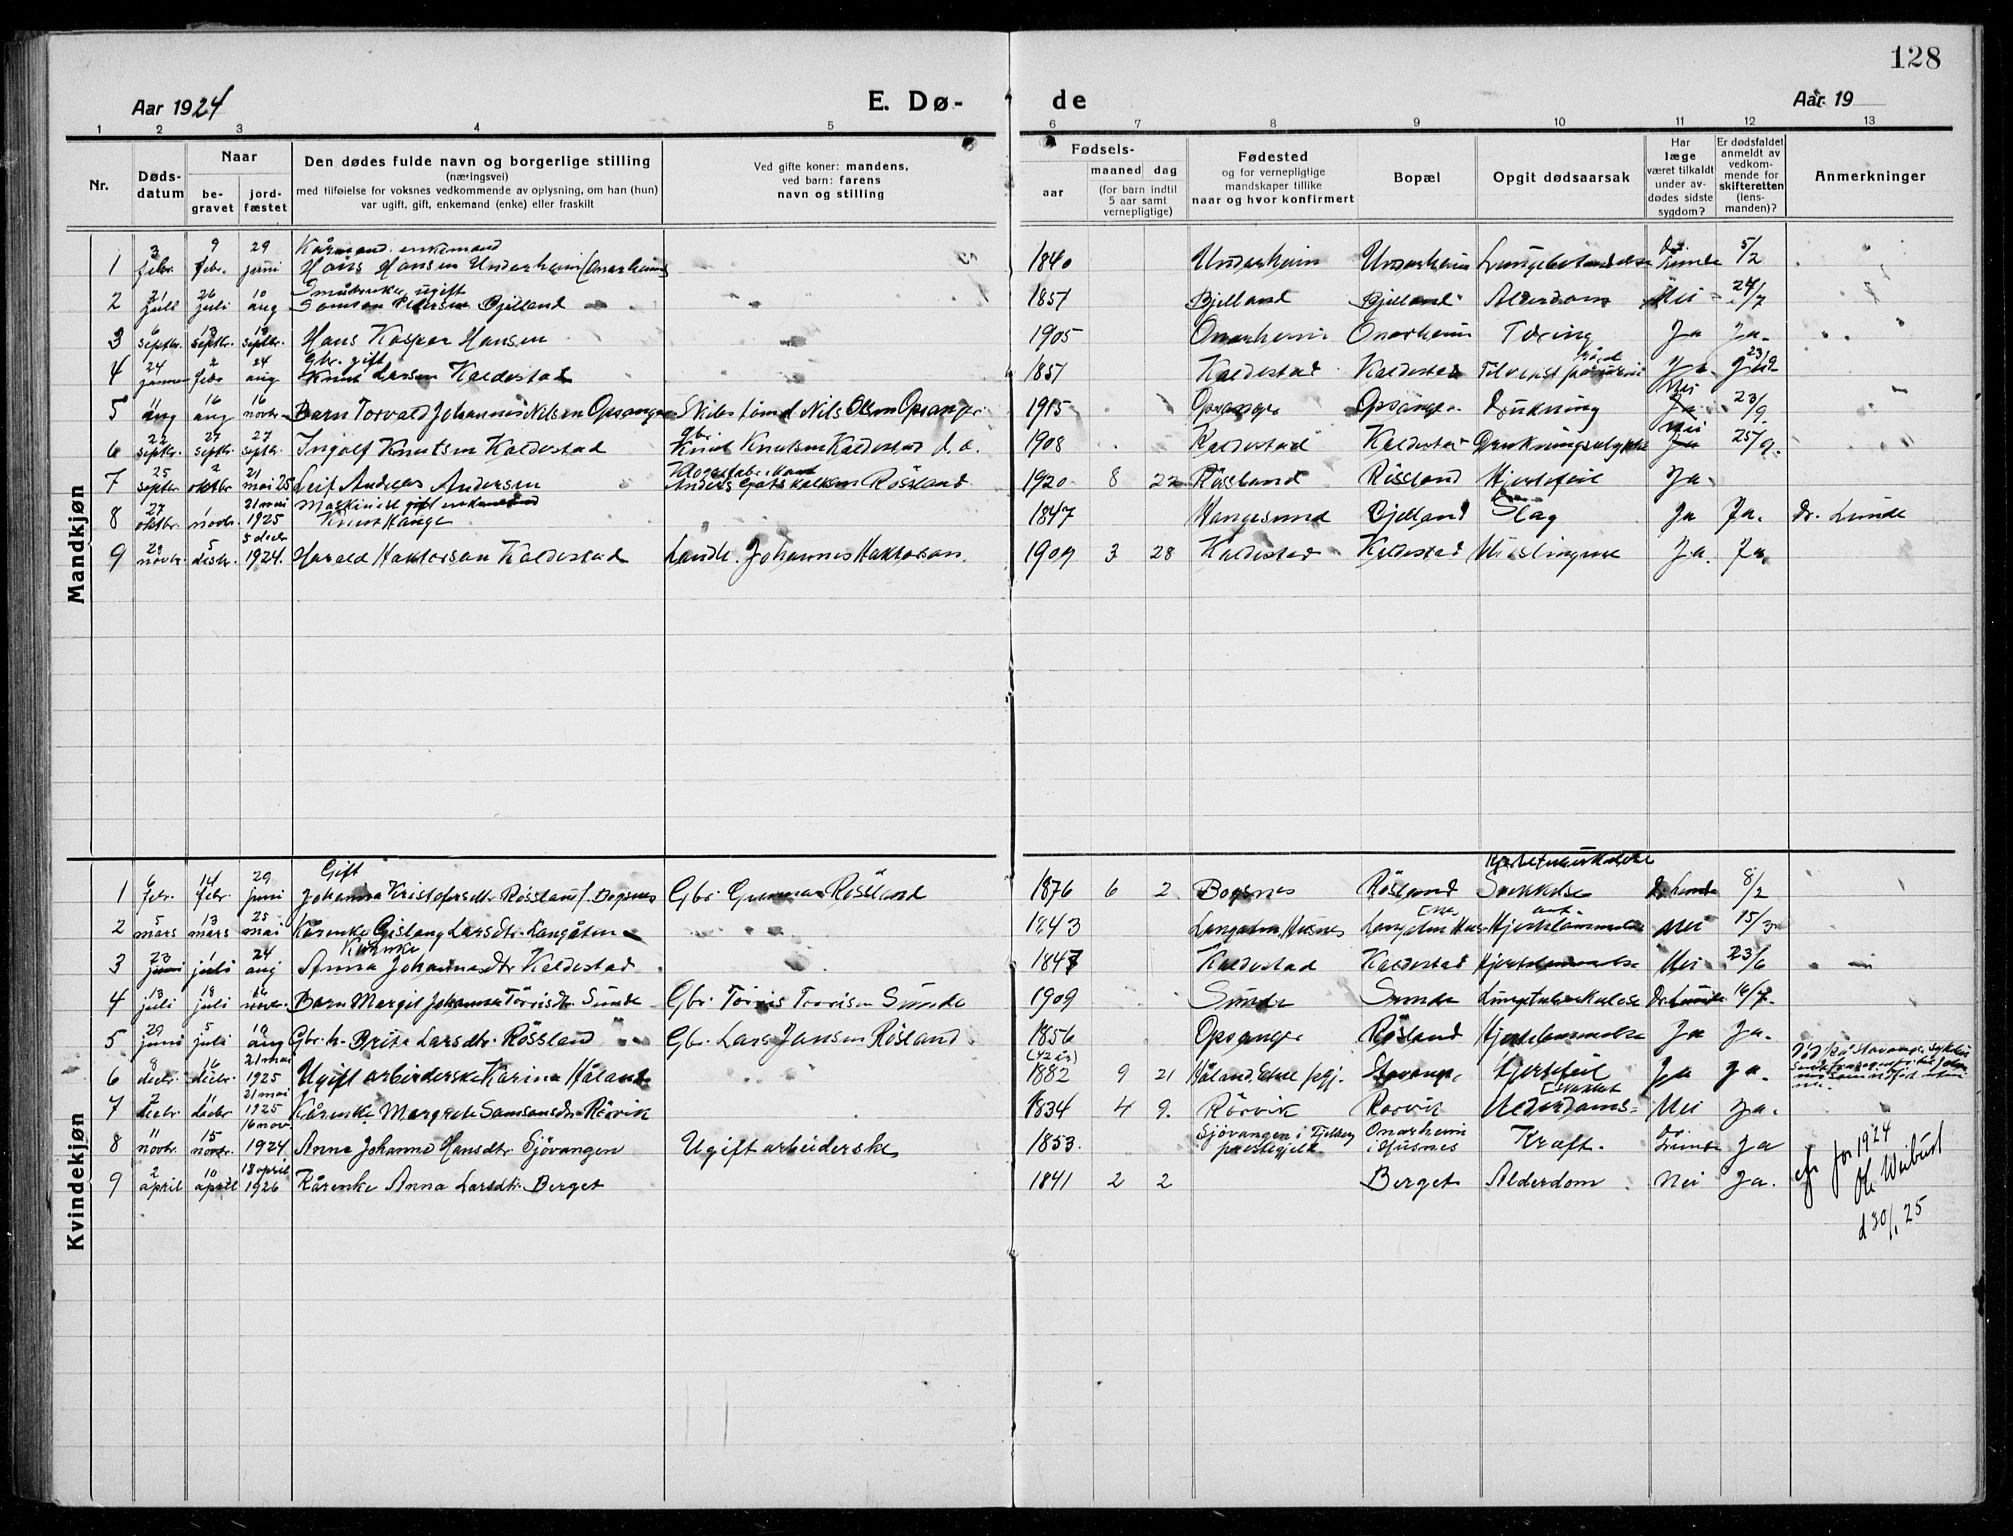 128
Aar 1924
E. Dø-
de
Aar 19
1 2 3 4 5 6 7 8 9 10 11 12 13
Nr.
Døds-
datum
Naar
be-
gravet
jord-
fæstet
Den dødes fulde navn og borgerlige stilling
(næringsvei)
med tilføielse for voksnes vedkommende av oplysning, om han (hun)
var ugift, gift, enkemand (enke) eller fraskilt
Ved gifte koner: mandens,
ved barn: farens
navn og stilling
Fødsels-
aar
maaned dag
(for barn indtil
5 aar samt
vernepligtige)
Fødested
og for vernepligtige
mandskaper tillike
naar og hvor konfirmert
Bopæl
Opgit dødsaarsak
Har
læge
været tilkaldt
under av-
dødes sidste
sygdom?
Er dødsfaldet
anmeldt av
vedkom-
mende for
skifteretten
(lens-
manden)?
Anmerkninger
Mandkjøn
1 3 febr. 9 febr. 29 juni Kårmand enkemand Hans Hansen Underheim (Onarheim) 1840 Underheim Underheim Dr. Lunde 5/2
2 21 juli 26 juli 10 aug ugift Samson Pedersen Bjelland 1851 Bjelland Bjelland Alderdom Nei 24/7
3 6 septbr. 13 septbr. septbr. Hans Kaspar Hansen 1905 Onarheim Onarheim Tæring Ja Ja.
4 24 januar 2 febr 24 aug Gbr. gift Knut Larsen Kaldestad 1851 Kaldestad Kaldestad Ja
5 11 aug 16 aug 16 novbr. Barn Torvald Johannes Nilsen Opsanger Nils Olsen Opsanger 1915 Opsanger Opsanger Drukning Nei 23/9.
6 22 septbr. 27 septbr. 27 septbr. Ingolf Knutsen Kaldestad Gbr. Knut Knutsen Kaldestad 1908 Kaldestad Kaldestad Drukningsulykke Nei 25/9.
7 25 septbr 2 oktbr 21 mai 25 Leif Andreas Andersen Røssland 1920 8 22 Røssland Røssland Hjertefeil Ja.
8 27 oktbr. 1 novbr. 21 mai 1925 Maskinist gift Knut Hauge 1847 Haugesund Bjelland Slag Ja Ja. Dr. Lunde
9 novbr. 5 desbr. 5 decbr 1924. Harald Haktorson Kaldestad Landh. Johannes Haktorson. 1909 3 28 Kaldestad Kaldestad Ja. Ja.
Kvindekjøn
1 6 febr. 14 febr. 29 juni Gift Johanna Kristofersdtr Røssland f. Bogsnes Gbr Gunnar Røssland 1876 6 2 Bogsnes Røsland Svækkelse Dr Lunde 8/2
2 5 mars 13 mars 25 mai Kårenke Gislaug Larsdtr. Langåten 1843 Husnes Nei 15/3
3 23 juni 1 juli 24 aug Kårenke Anna Johannesdtr Kaldestad 1847 Kaldestad Kaldestad Hjertelammelse Nei 23/6
4 13 juli 18 juli 16 novbr. Barn Margit Johanne Torrisdtr Sunde Gbr. Torris Torrisen Sunde 1909 Sunde Sunde Lungetuberkulose Dr Lunde 16/7.
5 29 juni 5 juli 10 aug Gbr. k. Brita Larsdtr. Røssland Gbr. Lars Jansen Røsland 1856 Opsanger Røsland Hjertelammelse Ja Ja.
6 8 decbr. 16 decbr. 21 mai 1925 Ugift arbeiderske Karina Håland (42 år) 1882 9 21 Stavanger Hjertefeil Ja Ja.
7 2 decbr. 11 decbr 21 mai 1925 Kårenke Margrete Samsonsdtr. Rørvik 1834 4 9. Rørvik Rørvik Nei Ja.
8 11 novbr. 15 novbr. 16 nov. 1924 Anna Johanna Hansdtr. Sjövangen Ugift arbeiderske 1853. Sjövangen i Fjelberg prestegjeld Onarheim i Husnes Kræft. Dr. Lunde Ja
9 2 april 10 april 18 april 1926 Kårenke Anna Larsdtr. Berget 1841 2 2 Berget Alderdom Nei Ja.
for 1924
d 30/1 25